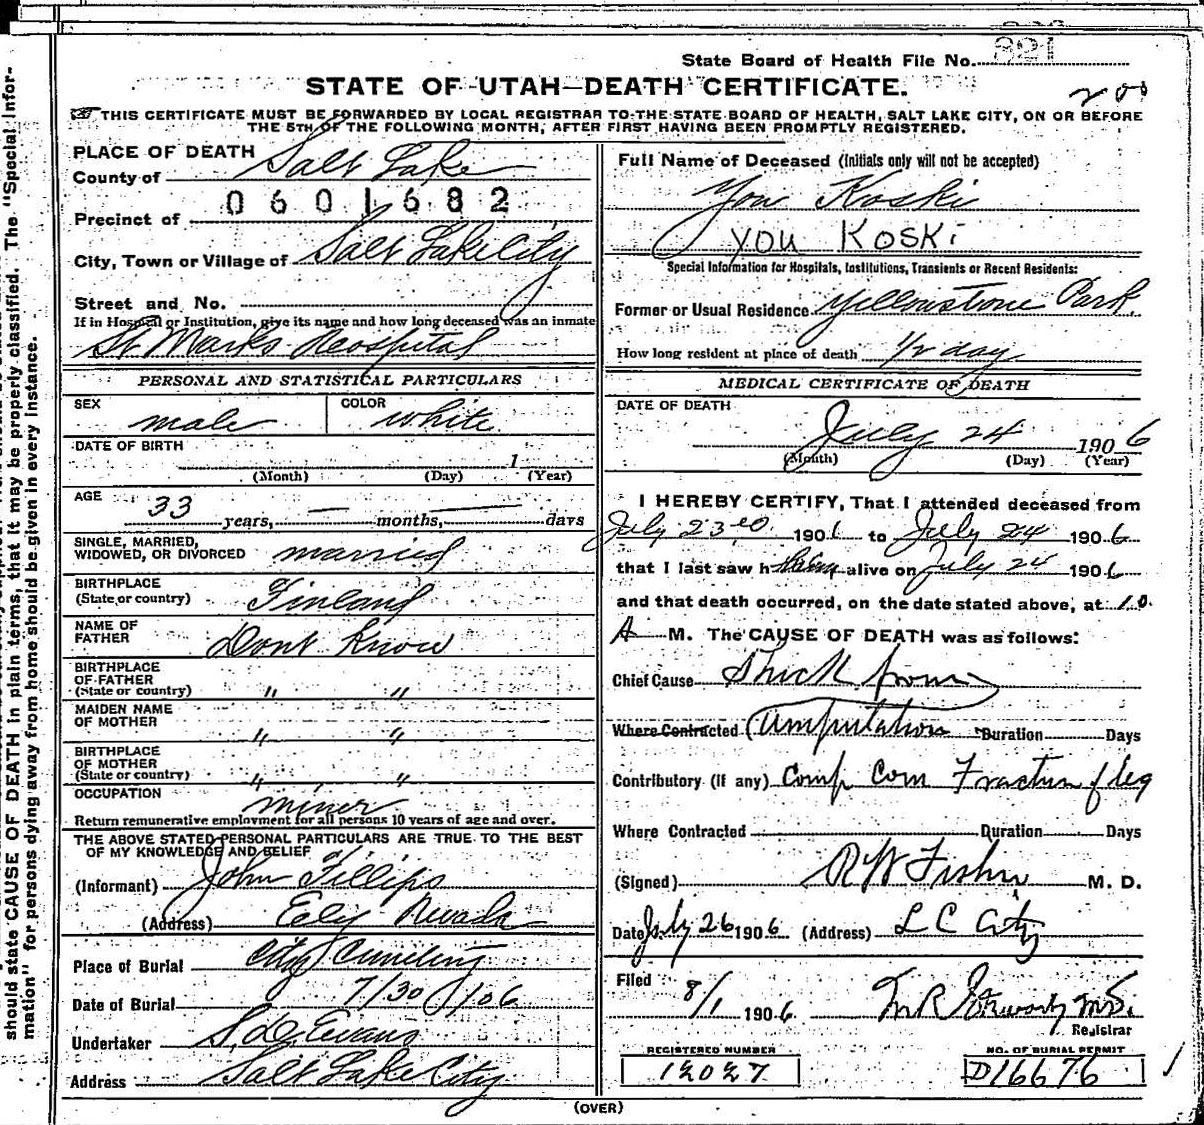 State Board of Health File No. 821
STATE OF UTAH—DEATH CERTIFICATE.
THIS CERTIFICATE MUST BE FORWARDED BY LOCAL REGISTRAR TO THE STATE BOARD OF HEALTH, SALT LAKE CITY, ON OR BEFORE
THE 5TH OF THE FOLLOWING MONTH, AFTER FIRST HAVING BEEN PROMPTLY REGISTERED.
PLACE OF DEATH
County of Salt Lake
0601682
Precinct of
City, Town or Village of Salt Lake City
Street and No.
If in Hospital or Institution, give its name and how long deceased was an inmate
St Marks Hospital
PERSONAL AND STATISTICAL PARTICULARS
SEX male COLOR white
DATE OF BIRTH
1
(Month) (Day) (Year)
AGE 33 years, — months, — days
SINGLE, MARRIED,
WIDOWED, OR DIVORCED married
BIRTHPLACE
(State or country) Finland
NAME OF
FATHER Dont Know
BIRTHPLACE
OF FATHER
(State or country) " "
MAIDEN NAME
OF MOTHER " "
BIRTHPLACE
OF MOTHER
(State or country) " "
OCCUPATION miner
Return remunerative employment for all persons 10 years of age and over.
THE ABOVE STATED PERSONAL PARTICULARS ARE TRUE TO THE BEST
OF MY KNOWLEDGE AND BELIEF
(Informant) John Fillips
(Address) Ely Nevada
Place of Burial City Cemetery
Date of Burial 7/30/06
Undertaker S. D. Evans
Address Salt Lake City
Full Name of Deceased (Initials only will not be accepted)
You Koski
YOU KOSKi
Special Information for Hospitals, Institutions, Transients or Recent Residents:
Former or Usual Residence Yellowstone Park.
How long resident at place of death 1/2 day
MEDICAL CERTIFICATE OF DEATH
DATE OF DEATH
July 24 1906
(Month) (Day) (Year)
I HEREBY CERTIFY, That I attended deceased from
July 23rd 1906 to July 24 1906
that I last saw him alive on July 24 1906
and that death occurred, on the date stated above, at 10.
A M. The CAUSE OF DEATH was as follows:
Chief Cause Shock from
Where Contracted Amputation Duration Days
Contributory (if any) Comp Com Fracture of leg
Where Contracted Duration Days
(Signed) R W Fisher M. D.
Date July 26 1906 (Address) L C City
Filed
8/1 1906 M.D.
Registrar
REGISTERED NUMBER
12027
NO. OF BURIAL PERMIT
D16676
(OVER)
should state CAUSE OF DEATH in plain terms, that it may be properly classified. The "Special Infor-
mation" for persons dying away from home should be given in every instance.